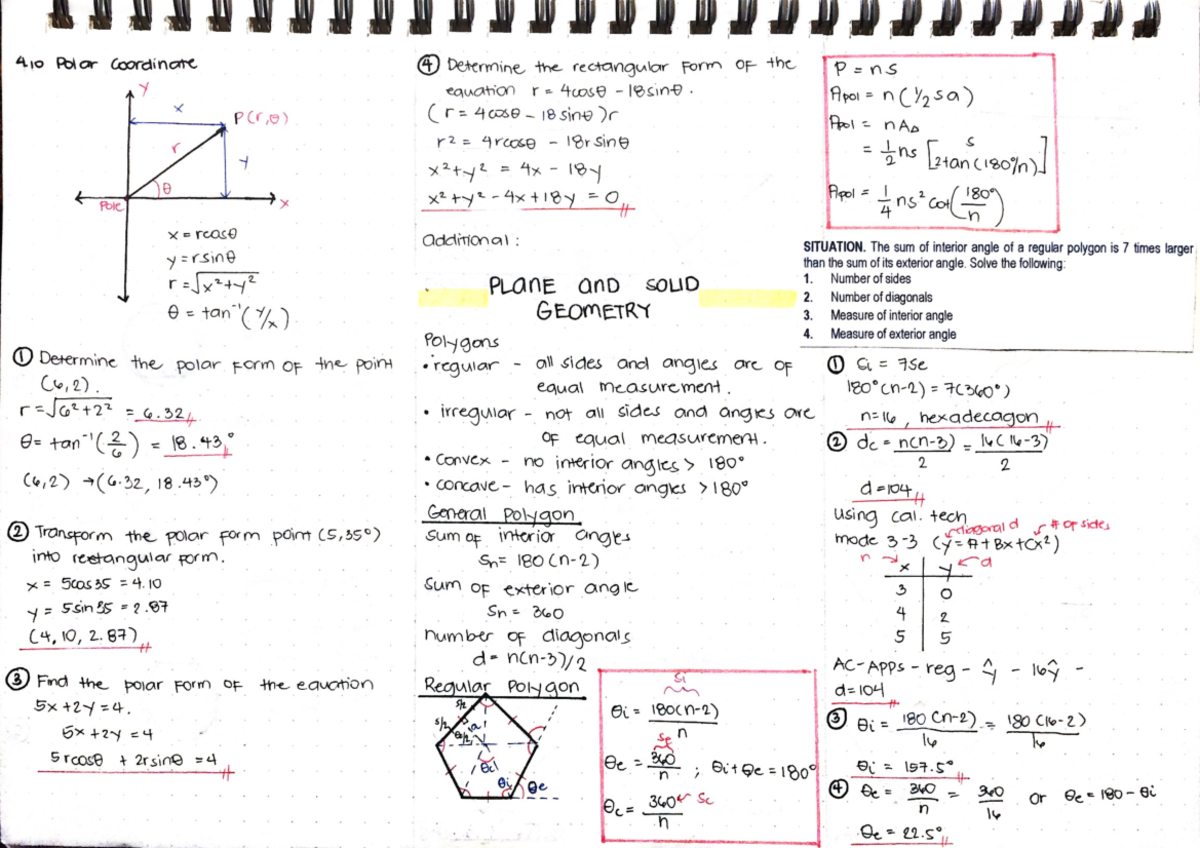 4.10 Polar Coordinate
y
x
P(r,θ)
r
y
θ
Pole
x
x = rcosθ
y = rsinθ
r = √x²+y²
θ = tan⁻¹(y/x)
① Determine the polar form of the point
(6,2).
r = √6²+2² = 6.32
θ = tan⁻¹(2/6) = 18.43°
(6,2) → (6.32, 18.43°)
② Transform the polar form point (5,35°)
into rectangular form.
x = 5cos35 = 4.10
y = 5sin35 = 2.87
(4,10, 2.87)
③ Find the polar form of the equation
5x +2y = 4.
5x +2y = 4
5rcosθ + 2rsinθ = 4
④ Determine the rectangular form of the
equation r = 4cosθ - 18sinθ.
(r = 4cosθ - 18sinθ)r
r² = 4rcosθ - 18rsinθ
x²+y² = 4x - 18y
x²+y²-4x+18y = 0
additional :
PLANE AND SOLID
GEOMETRY
Polygons
• regular - all sides and angles are of
equal measurement.
• irregular - not all sides and angles are
of equal measurement.
• Convex - no interior angles > 180°
• concave - has interior angles >180°
General Polygon
Sum of interior angles
Sn = 180(n-2)
Sum of exterior angle
Sn = 360
number of diagonals
d = n(n-3)/2
Regular Polygon
s/2
s/2
a
θ/2
θi
θe
Si
θi = 180(n-2)/n
Se
θe = 360/n ; θi+θe = 180°
θc = 360/n ← Sc
P = ns
Apol = n(½sa)
Apol = nA△
= ½ns [s/2tan(180°/n)]
Apol = ¼ns²cot(180°/n)
SITUATION. The sum of interior angle of a regular polygon is 7 times larger
than the sum of its exterior angle. Solve the following:
1. Number of sides
2. Number of diagonals
3. Measure of interior angle
4. Measure of exterior angle
① Si = 7Se
180°(n-2) = 7(360°)
n=16, hexadecagon
② dc = n(n-3)/2 = 16(16-3)/2
d = 104
using cal. tech
diagonal d # of sides
mode 3-3 (y = A+Bx+Cx²)
n → x y ← d
3 0
4 2
5 5
AC-Apps - reg - ŷ - 16ŷ -
d=104
③ θi = 180(n-2)/16 = 180(16-2)/16
θi = 157.5°
④ θe = 360/n = 360/16 or θe = 180-θi
θe = 22.5°